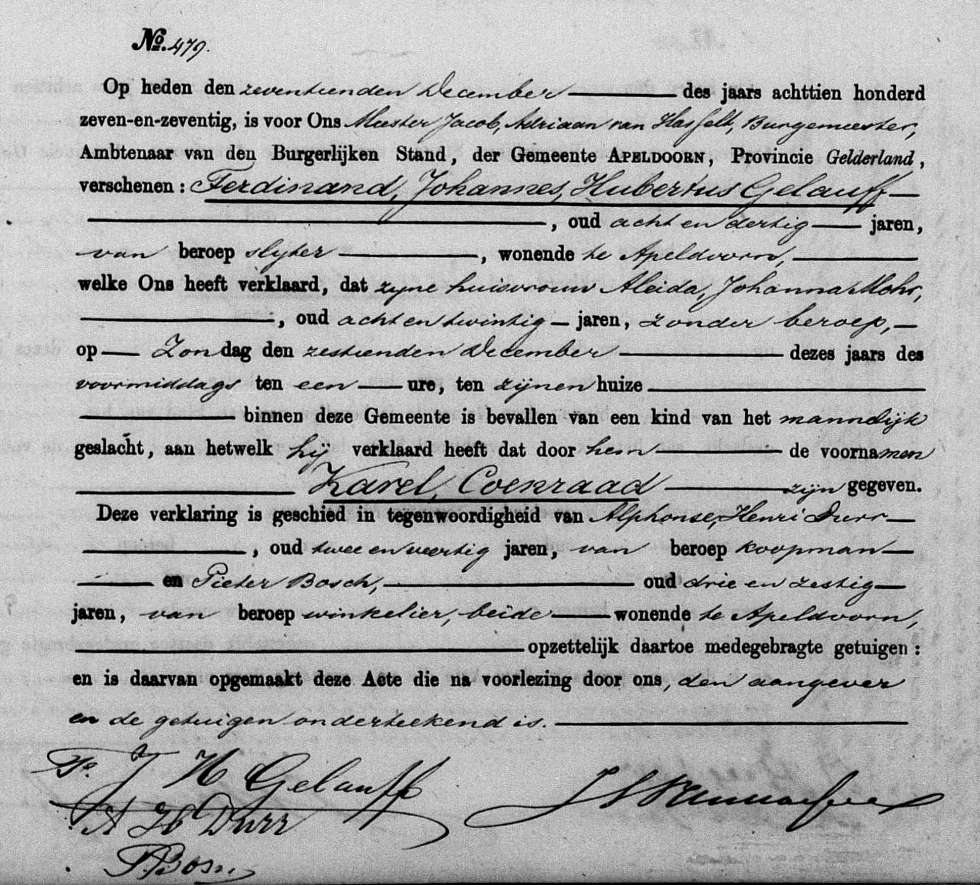 No. 479.
Op heden den zeventienden December des jaars achttien honderd
zeven-en-zeventig, is voor Ons Meester Jacob, Adriaan van Hasselt, Burgemeester,
Ambtenaar van den Burgerlijken Stand, der Gemeente APELDOORN, Provincie Gelderland,
verschenen: Ferdinand, Johannes, Hubertus Gelauff
, oud acht en dertig jaren,
van beroep slyter , wonende te Apeldoorn,
welke Ons heeft verklaard, dat zyne huisvrouw Aleida, Johanna Mohr,
, oud acht en twintig jaren, zonder beroep,
op Zondag den zestienden December dezes jaars des
voormiddags ten een ure, ten zijnen huize
binnen deze Gemeente is bevallen van een kind van het mannelijk
geslacht, aan hetwelk hij verklaard heeft dat door hem de voornamen
Karel, Coenraad zijn gegeven.
Deze verklaring is geschied in tegenwoordigheid van Alphonse, Henri Durr
, oud twee en veertig jaren, van beroep koopman
en Pieter Bosch, oud drie en zestig
jaren, van beroep winkelier, beide wonende te Apeldoorn,
opzettelijk daartoe medegebragte getuigen:
en is daarvan opgemaakt deze Acte die na voorlezing door ons, den aangever
en de getuigen onderteekend is.
J H Gelauff
A H Durr
P. Bosch